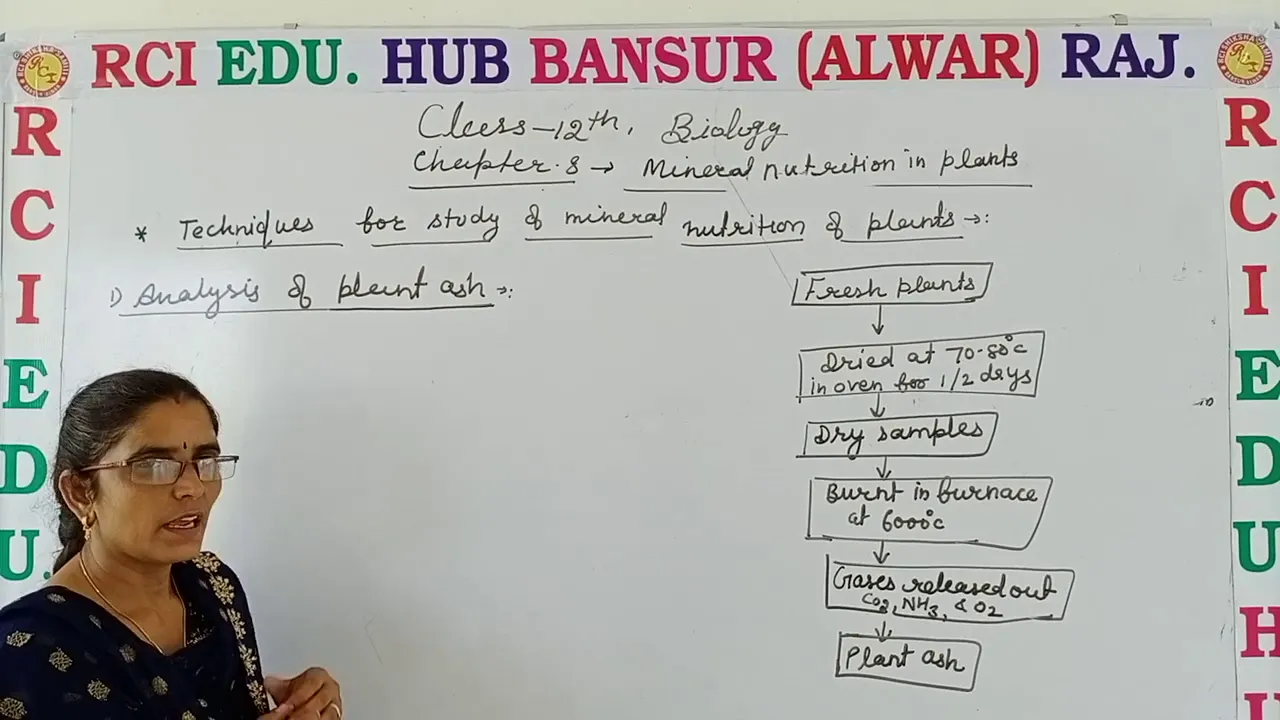 RCI EDU. HUB BANSUR (ALWAR) RAJ.
R
C
I
E
D
U.
R
C
I
E
D
U
H
U
Class-12th, Biology
Chapter.8 → Mineral nutrition in plants
* Techniques for study of mineral nutrition of plants →:
1) Analysis of plant ash →:
Fresh plants
Dried at 70-80°c
in oven for 1/2 drys
Dry samples
Burnt in furnace
at 6000°c
Gases released out
CO2, NH3, & O2
Plant ash